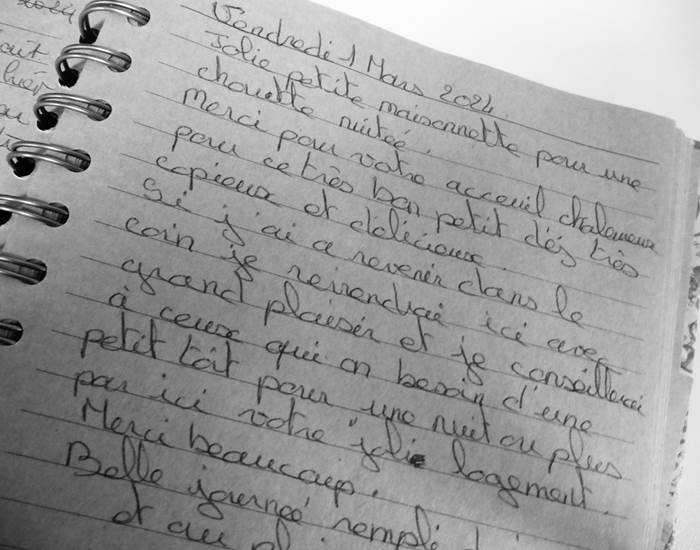 Vendredi 1 Mars 2024.
Jolie petite maisonnette pour une
chouette nuitée.
Merci pour votre acceuil chaleureux
pour ce très bon petit déj très
copieux et délicieux.
Si j'ai a revenir dans le
coin je reviendrai ici avec
grand plaisir et je conseillerai
à ceux qui on besoin d'une
petit toit pour une nuit ou plus
par ici votre joli logement.
Merci beaucoup.
Belle journée rempli
et au